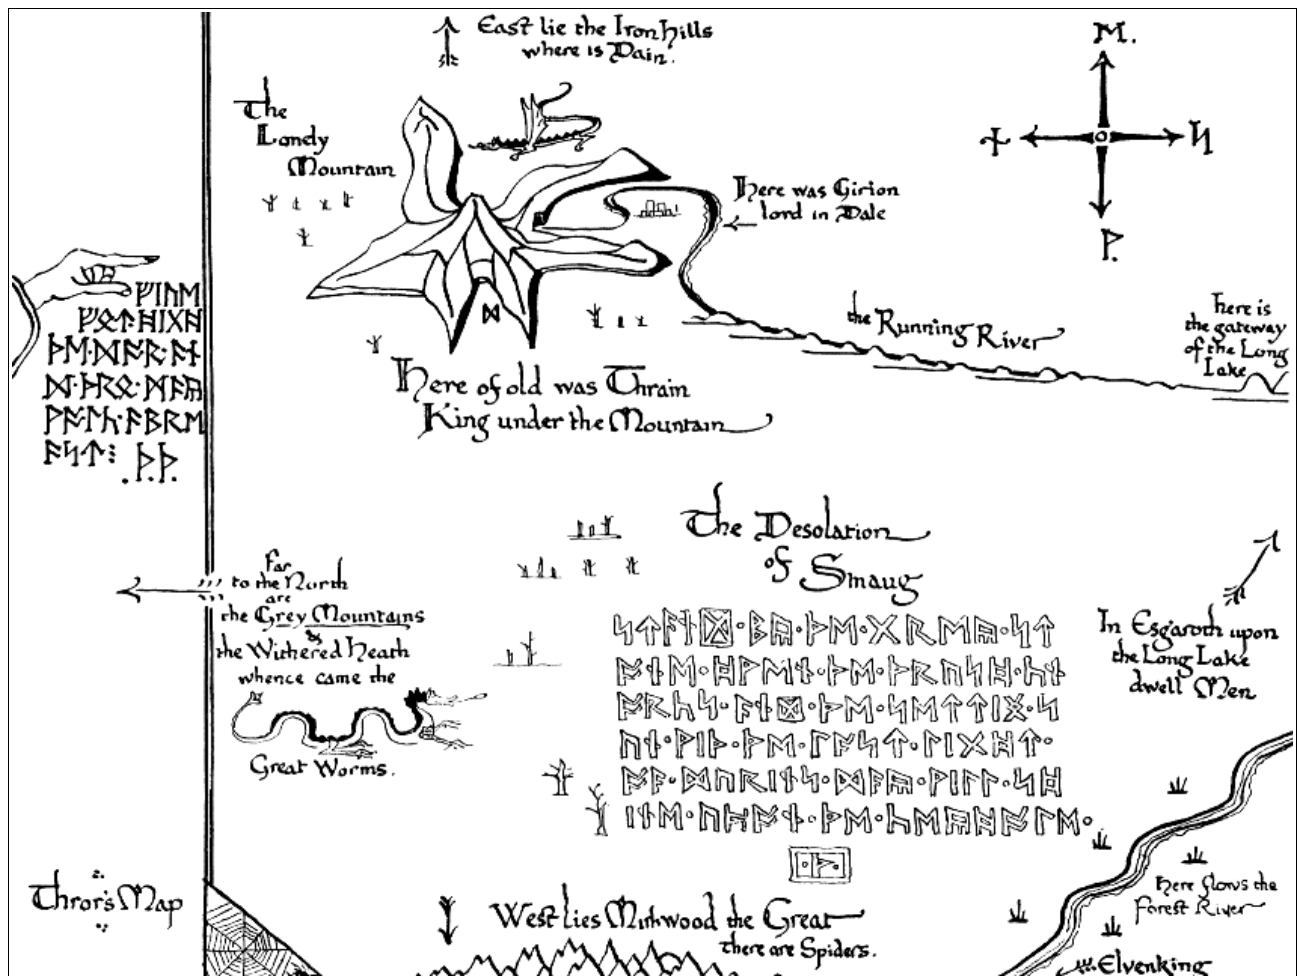 East lie the Iron Hills
where is Dain.
ᛗ.
ᛋ
ᚹ.
The
Lonely
Mountain
Here was Girion
lord in Dale
ᚠᛁᚢᛖ
ᚠᛟᛏ᛫ᚻᛁᚷᚻ
ᚦᛖ᛫ᛞᚩᚱ᛫ᚪᚾ
ᛞ᛫ᚦᚱᛟ᛫ᛗᚪᚣ
ᚹᚪᛚᚳ᛫ᚪᛒᚱᛖ
ᚪᛋᛏ᛬ ᚦ.ᚦ.
the Running River
here is
the gateway
of the Long
Lake
Here of old was Thrain
King under the Mountain
The Desolation
of Smaug
Far
to the North
are
the Grey Mountains
&
the Withered Heath
whence came the
Great Worms.
ᛋᛏᚪᚾᛞ᛫ᛒᚣ᛫ᚦᛖ᛫ᚷᚱᛖᚣ᛫ᛋᛏ
ᚩᚾᛖ᛫ᚻᚹᛖᚾ᛫ᚦᛖ᛫ᚦᚱᚢᛋᚻ᛫ᚳᚾ
ᚩᚱᚳᛋ᛫ᚪᚾᛞ᛫ᚦᛖ᛫ᛋᛖᛏᛏᛁᛝ᛫ᛋ
ᚢᚾ᛫ᚹᛁᚦ᛫ᚦᛖ᛫ᛚᚪᛋᛏ᛫ᛚᛁᚷᚻᛏ᛫
ᚩᚠ᛫ᛞᚢᚱᛁᚾᛋ᛫ᛞᚪᚣ᛫ᚹᛁᛚᛚ᛫ᛋᚻ
ᛁᚾᛖ᛫ᚢᛈᚩᚾ᛫ᚦᛖ᛫ᚳᛖᚣᚻᚩᛚᛖ᛫
᛫ᚦ᛫
In Esgaroth upon
the Long Lake
dwell Men
Thror's Map
West lies Mirkwood the Great
there are Spiders.
Here flows the
Forest River
Elvenking